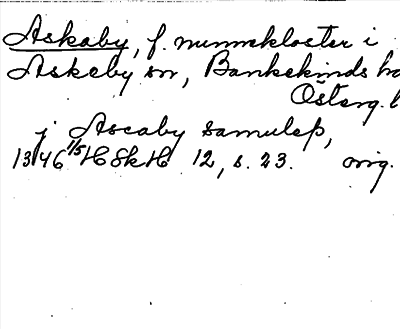 Askaby, f. nunnekloster i
Askeby sn, Bankekinds
Österg.
j Ascaby samulęþ,
1346 1/5 HSkH 12, s. 23. orig.